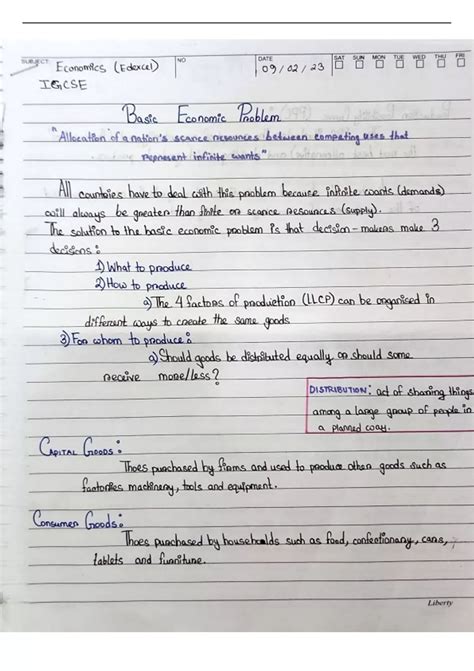 SUBJECT: Economics (Edexcel) NO DATE 09/02/23 SAT SUN MON TUE WED THU FRI
IGCSE
Basic Economic Problem
"Allocation of a nation's scarce resources between competing uses that
represent infinite wants"
All countries have to deal with this problem because infinite wants (demands)
will always be greater than finite or scarce resources (supply).
The solution to the basic economic problem is that decision-makers make 3
decisions:
1) What to produce
2) How to produce
a) The 4 factors of production (LLCP) can be organised in
different ways to create the same goods
3) For whom to produce:
a) Should goods be distributed equally or should some
receive more/less?
DISTRIBUTION: act of sharing things
among a large group of people in
a planned way.
CAPITAL GOODS:
Thoes purchased by firms and used to produce other goods such as
factories machinery, tools and equipment.
Consumer Goods:
Thoes purchased by households such as food, confectionary, cars,
tablets and furniture.
Liberty